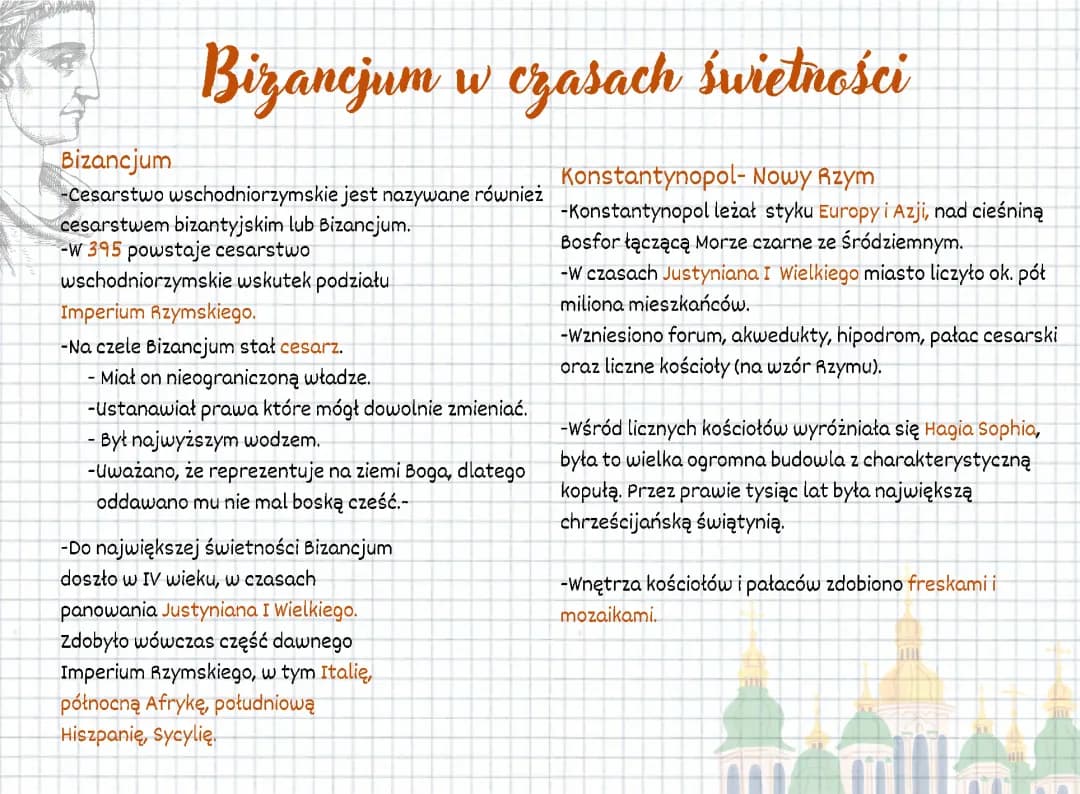 Bizancjum w czasach świetności
Bizancjum
-Cesarstwo wschodniorzymskie jest nazywane również
cesarstwem bizantyjskim lub Bizancjum.
-W 395 powstaje cesarstwo
wschodniorzymskie wskutek podziału
Imperium Rzymskiego.
-Na czele Bizancjum stał cesarz.
- Miał on nieograniczoną władze.
-Ustanawiał prawa które mógł dowolnie zmieniać.
- Był najwyższym wodzem.
-Uważano, że reprezentuje na ziemi Boga, dlatego
oddawano mu nie mal boską cześć.-
-Do największej świetności Bizancjum
doszło w IV wieku, w czasach
panowania Justyniana I Wielkiego.
Zdobyło wówczas część dawnego
Imperium Rzymskiego, w tym Italię,
północną Afrykę, południową
Hiszpanię, Sycylię.
Konstantynopol- Nowy Rzym
-Konstantynopol leżał styku Europy i Azji, nad cieśniną
Bosfor łączącą Morze czarne ze Śródziemnym.
-W czasach Justyniana I Wielkiego miasto liczyło ok. pół
miliona mieszkańców.
-Wzniesiono forum, akwedukty, hipodrom, pałac cesarski
oraz liczne kościoły (na wzór Rzymu).
-Wśród licznych kościołów wyróżniała się Hagia Sophia,
była to wielka ogromna budowla z charakterystyczną
kopułą. Przez prawie tysiąc lat była największą
chrześcijańską świątynią.
-Wnętrza kościołów i pałaców zdobiono freskami i
mozaikami.